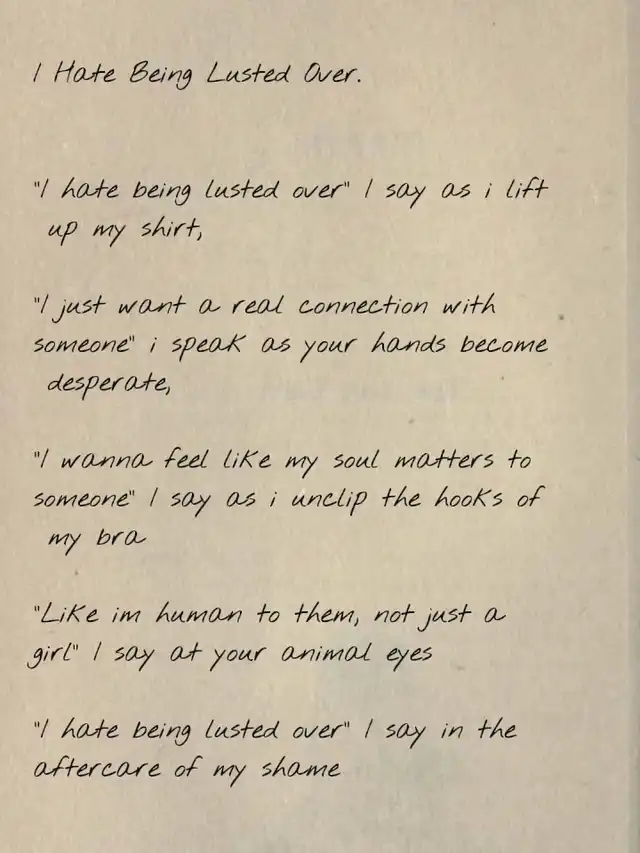 I Hate Being Lusted Over.
"I hate being lusted over" I say as i lift
up my shirt,
"I just want a real connection with
someone" i speak as your hands become
desperate,
"I wanna feel like my soul matters to
someone" I say as i unclip the hooks of
my bra
"Like im human to them, not just a
girl" I say at your animal eyes
"I hate being lusted over" I say in the
aftercare of my shame